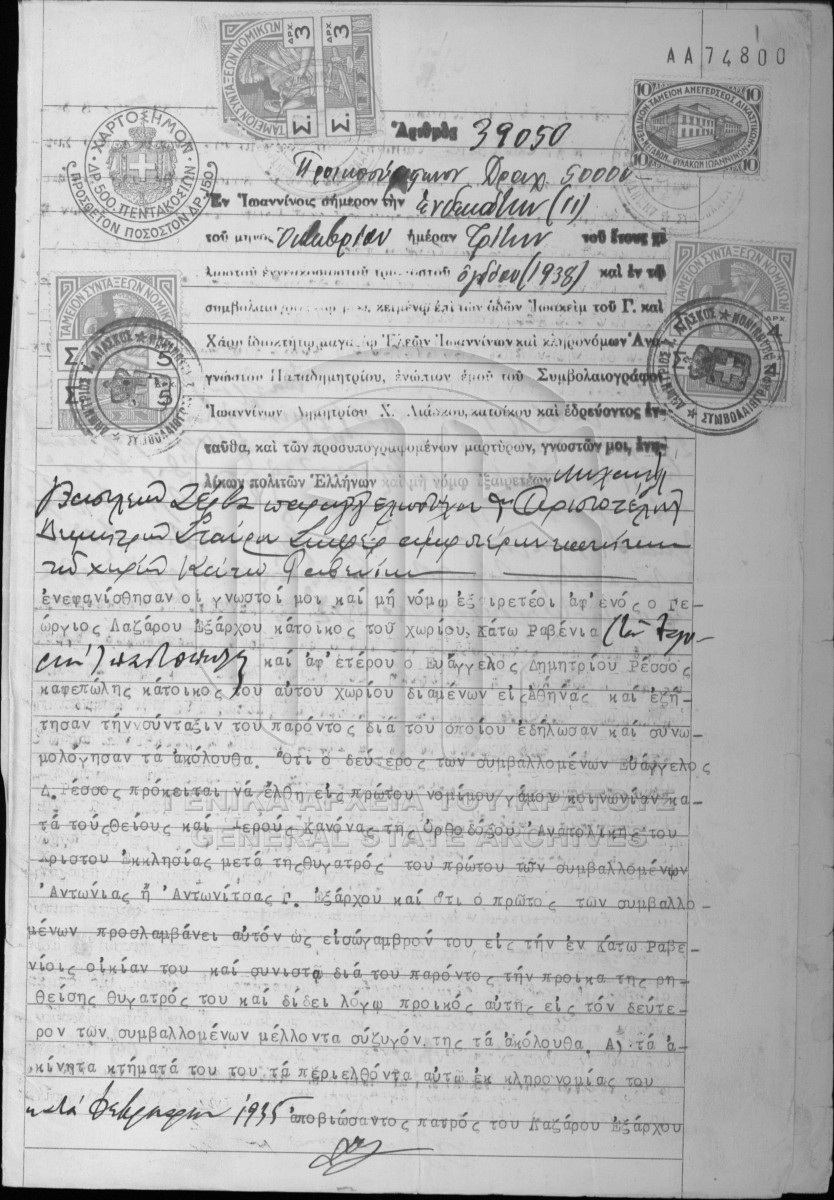 ΑΑ74800
ΤΑΜΕΙΟΝ ΣΥΝΤΑΞΕΩΝ ΝΟΜΙΚΩΝ
ΔΡΧ 3 Σ. ΔΡΧ 3 Σ.
ΧΑΡΤΟΣΗΜΟΝ
ΔΡ. 500 ΠΕΝΤΑΚΟΣΙΩΝ
ΠΡΟΣΘΕΤΟΝ ΠΟΣΟΣΤΟΝ ΔΡ. 150
10 10
10 10
Ἀριθμὸς 39050
Προικοσύμφωνον Δραχ. 50000
Ἐν Ἰωαννίνοις σήμερον τὴν Ἑνδεκάτην (11)
τοῦ μηνὸς Ὀκτωβρίου ἡμέραν Τρίτην τοῦ ἔτους χι
λιοστοῦ ἐννεακοσιοστοῦ τριακοστοῦ ὀγδόου (1938) καὶ ἐν τῷ
συμβολαιογραφείῳ μου, κειμένῳ ἐπὶ τῶν ὁδῶν Ἰωακεὶμ τοῦ Γ. καὶ
Χάρη ἰδιοκτήτῳ Ἐλεῶν Ἰωαννίνων καὶ κληρονόμων Ἀνα
γνώστου Παπαδημητρίου, ἐνώπιον ἐμοῦ τοῦ Συμβολαιογράφου
Ἰωαννίνων Δημητρίου Χ. Λιάσκου, κατοίκου καὶ ἑδρεύοντος ἐν
ταῦθα, καὶ τῶν προσυπογραφομένων μαρτύρων, γνωστῶν μοι, ἐνη
λίκων πολιτῶν Ἑλλήνων καὶ μὴ νόμῳ ἐξαιρετέων Μιχαὴλ
Βασιλείου Ζέρβα καὶ Ἀριστοτέλη
Δημητρίου Σταύρου ἀμφοτέρων κατοίκων
τοῦ χωρίου Κάτω Ραβενίων
ἐνεφανίσθησαν οἱ γνωστοί μοι καί μή νόμῳ ἐξαιρετέοι ἀφ'ἑνός ο Γε-
ώργιος Λαζάρου Εξάρχου κάτοικος τοῦ χωρίου, Κάτω Ραβένια
καί ἀφ'ἑτέρου ο Ευάγγελος Δημητρίου Ρέσσος
καφεπώλης κάτοικος του αὐτου χωρίου διαμένων εἰς Ἀθήνας καί ἐζή-
τησαν τήν σύνταξιν του παρόντος διά του ὁποίου ἐδήλωσαν καί συνω-
μολόγησαν τά ἀκόλουθα. Ὅτι ὁ δεύτερος των συμβαλλομένων Εὐάγγελος
Δ. Ρέσσος πρόκειται νά ἔλθη εἰς πρώτου νομίμου γάμου κοινωνίαν κα-
τά τούς Θείους καί Ἱερούς Κανόνας της Ὀρθοδόξου Ἀνατολικης του
Χριστου Εκκλησίας μετά της θυγατρός του πρώτου των συμβαλλομένων
Ἀντωνίας ἤ Ἀντωνίτσας Γ. Εξάρχου καί ὅτι ο πρωτος των συμβαλλο-
μένων προσλαμβάνει αὐτόν ὡς εἰσώγαμβρόν του εἰς τήν ἐν Κάτω Ραβε-
νίοις οἰκίαν του καί συνιστα διά του παρόντος τήν προικα της ρη-
θείσης θυγατρός του καί δίδει λόγῳ προικός αὐτης εἰς τόν δεύτε-
ρον των συμβαλλομένων μέλλοντα σύζυγόν της τά ἀκόλουθα. Α) τά ἀ-
κίνητα κτήματά του του τά περιελθόντα αὐτω ἐκ κληρονομίας του
κατά Φεβρουάριον 1935 ἀποβιώσαντος πατρός του Λαζάρου Εξάρχου
ΤΑΜΕΙΟΝ ΣΥΝΤΑΞΕΩΝ ΝΟΜΙΚΩΝ
Σ 5
Σ 5
ΤΑΜΕΙΟΝ ΣΥΝΤΑΞΕΩΝ ΝΟΜΙΚΩΝ
ΔΡΧ
Σ 4
Σ 4
ΔΗΜΗΤΡΙΟΣ Χ. ΛΙΑΣΚΟΣ
ΣΥΜΒΟΛΑΙΟΓΡΑΦΟΣ
ΓΕΝΙΚΑ ΑΡΧΕΙΑ ΤΟΥ ΚΡΑΤΟΥΣ
GENERAL STATE ARCHIVES